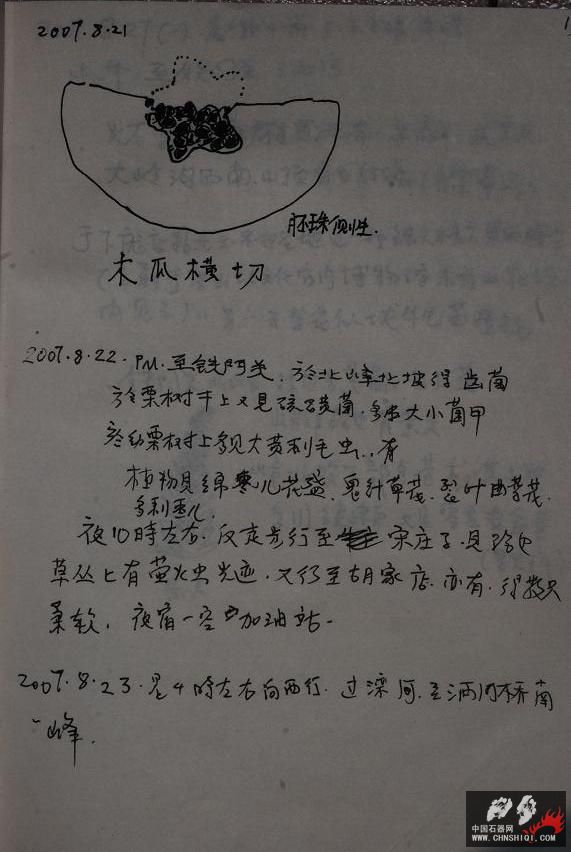 2007.8.21
胚珠侧性.
木瓜横切
2007.8.22. PM. 至铁门关. 於北峰北坡得 齿菌
於栗树干上又见硫磺菌. 多本大小菌甲
於幼栗树上多见大黄刺毛虫.. 有
植物见绵枣儿花盛. 鬼针草茂. 裂叶曲等茂.
多刺枣儿.
夜10時左右. 反走步行至 宋庄子. 见路边
草丛上有萤火虫光迹. 又行至胡家店. 亦有. 得数只
柔软. 夜宿一空 加油站.
2007.8.23. 是4時左右向西行. 过滦河. 至 河桥南
一峰.
中国石器网
WWW.CHNSHIQI.COM